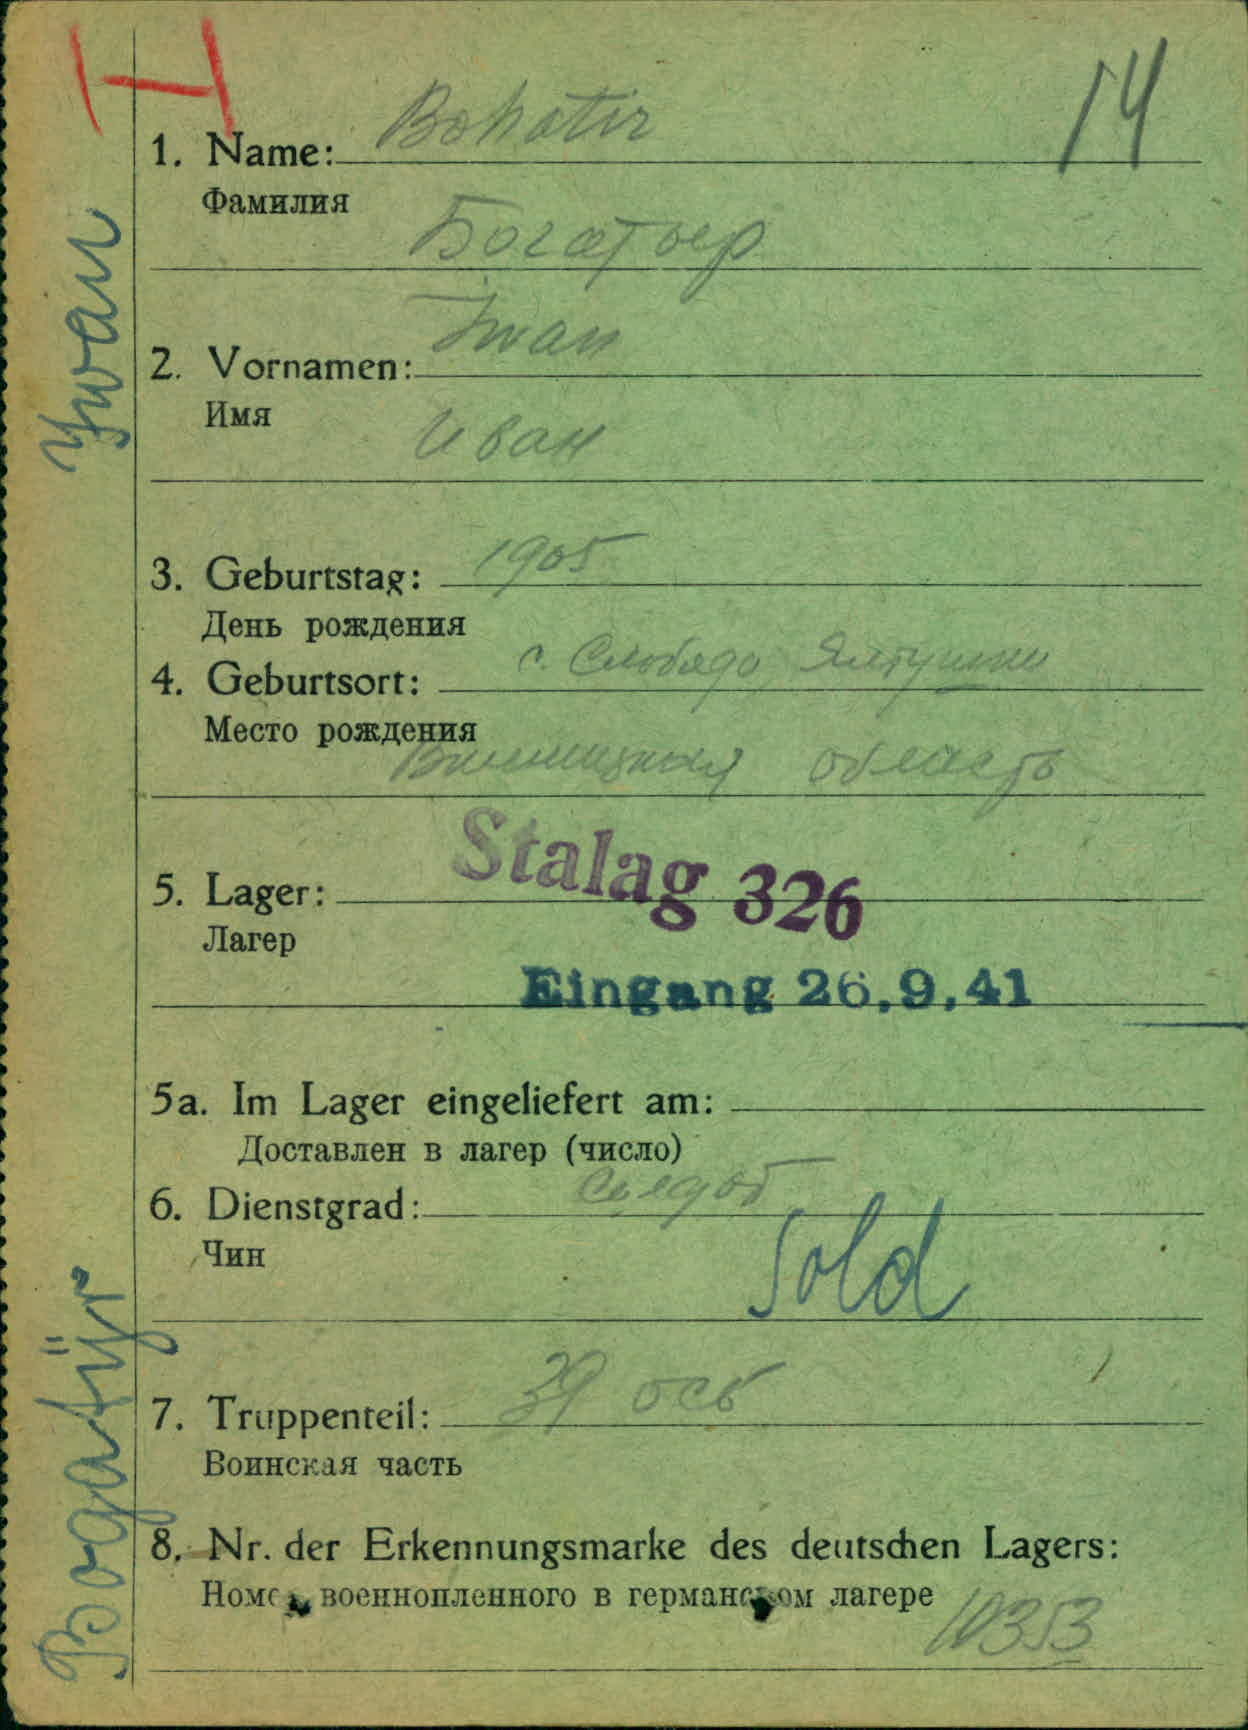 14
Bohatir
1. Name:
Фамилия
Богатыр
Iwan
2. Vornamen:
Имя
Иван
3. Geburtstag: 1905
День рождения
4. Geburtsort: с. Слобода Ялтушки
Место рождения
Винницкая область
Stalag 326
5. Lager:
Лагер
Eingang 26.9.41
5a. Im Lager eingeliefert am:
Доставлен в лагер (число)
6. Dienstgrad: солдат
Чин
Sold
7. Truppenteil: 39 осб
Воинская часть
8. Nr. der Erkennungsmarke des deutschen Lagers:
Номер военнопленного в германском лагере
10353
Bogatÿr Ywan